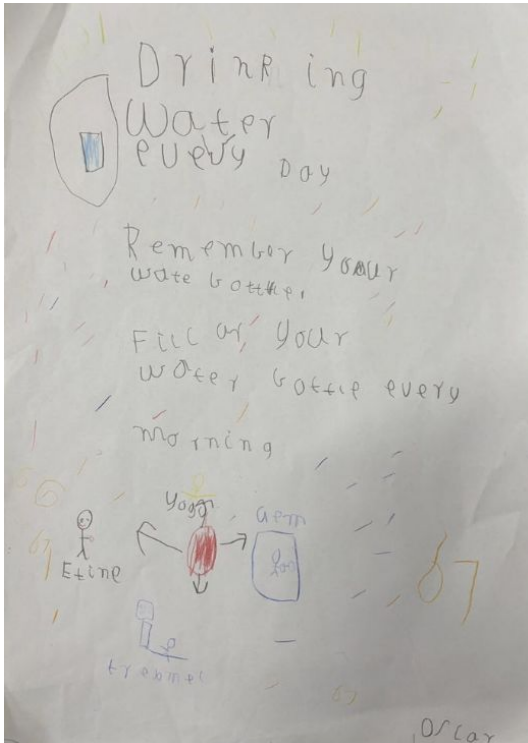 Drinking
Water
every Day
Remember your
wate bottle.
Fill up your
water bottle every
morning
Yoga
Gem
Etine
67
67
67
Oscar